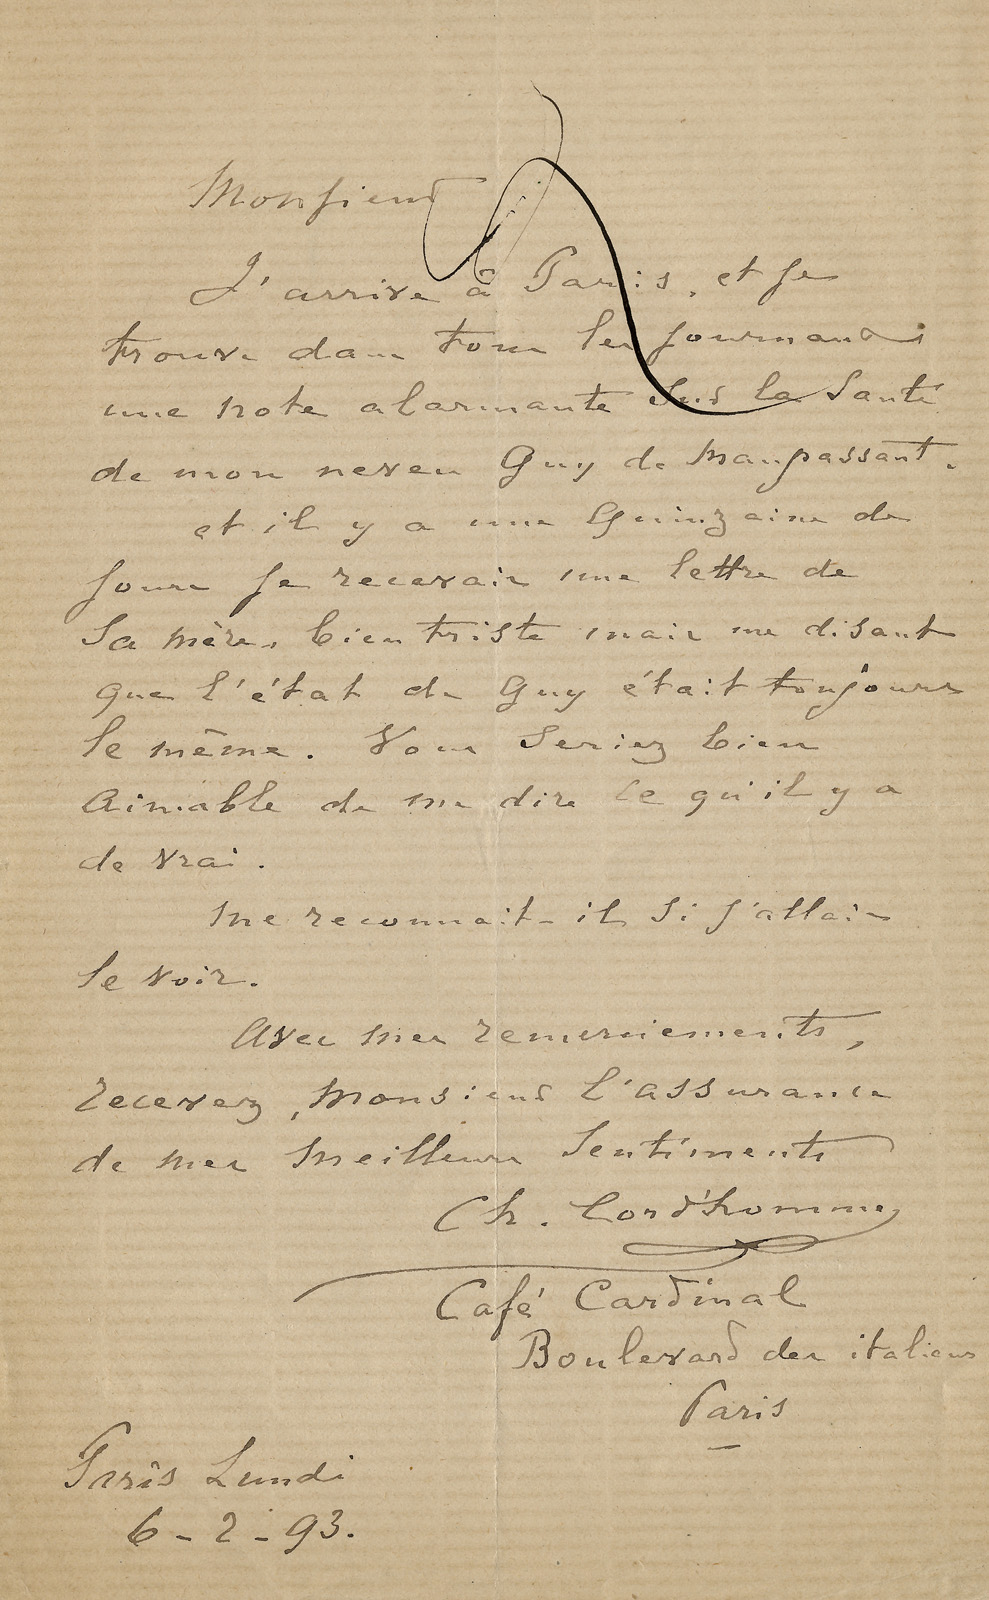 Monsieur
J'arrive à Paris, et je
trouve dans tous les journaux
une note alarmante sur la santé
de mon neveu Guy de Maupassant.
et il y a une quinzaine de
jours je recevais une lettre de
sa mère, bien triste mais me disant
que l'état de Guy était toujours
le même. Vous seriez bien
aimable de me dire ce qu'il y a
de vrai.
me reconnait-il si j'allais
le voir.
Avec mes remerciements,
recevez, Monsieur l'assurance
de mes meilleurs sentiments
Ch. Cord'homme
Café Cardinal
Boulevard des italiens
Paris
Paris Lundi
6-2-93.